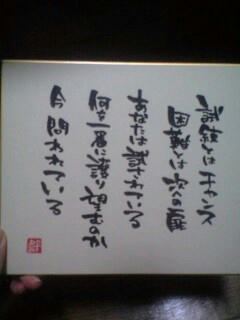 試練とはチャンス
困難とは次への扉
あなたは試されている
何を一番に護り望むのか
今問われている